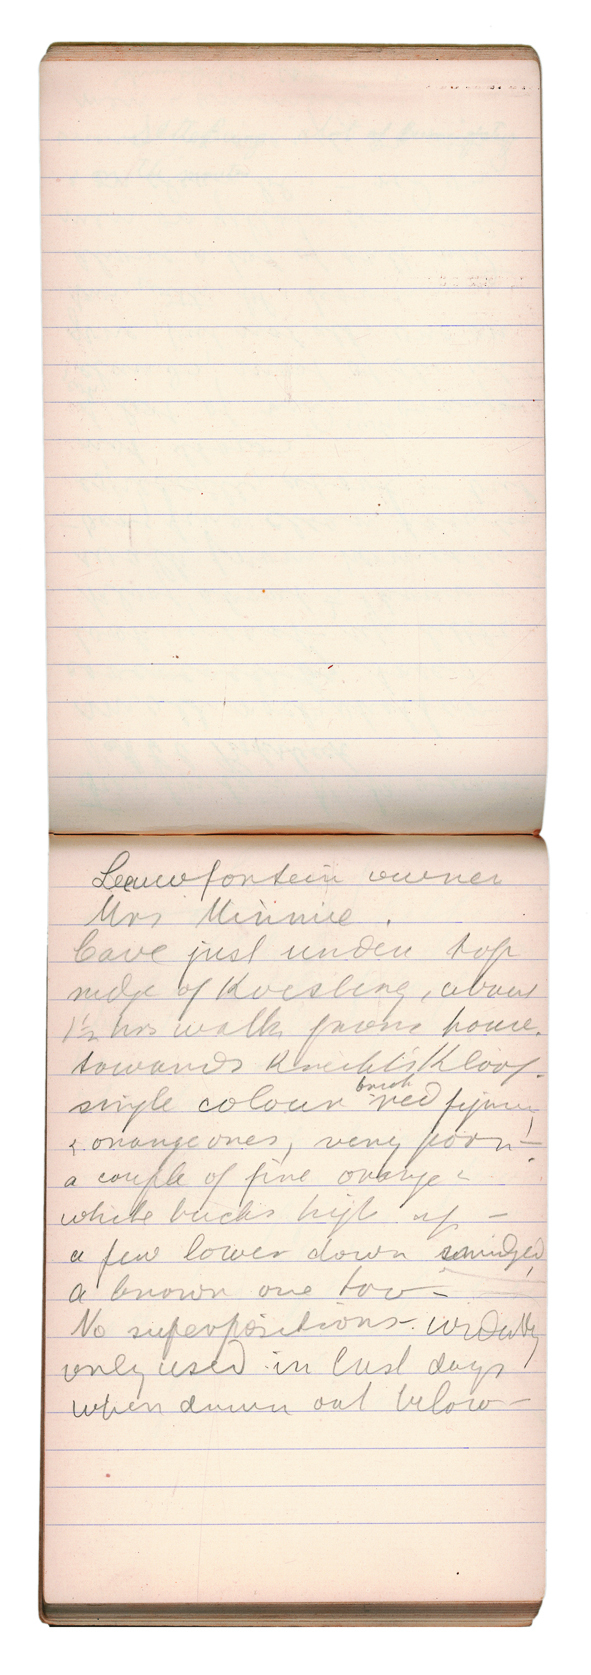 Leeuwfontein owner
Mrs Minnie.
Cave just under top
ridge of Koesberg, about
1½ hrs walk from house.
towards Knecht's Kloof.
single colour brick red figures
& orange ones, very poor -
a couple of fine orange &
white bucks high up -
a few lower down smudged
a brown one too -
No superpositions - evidently
only used in last days
when driven out below -